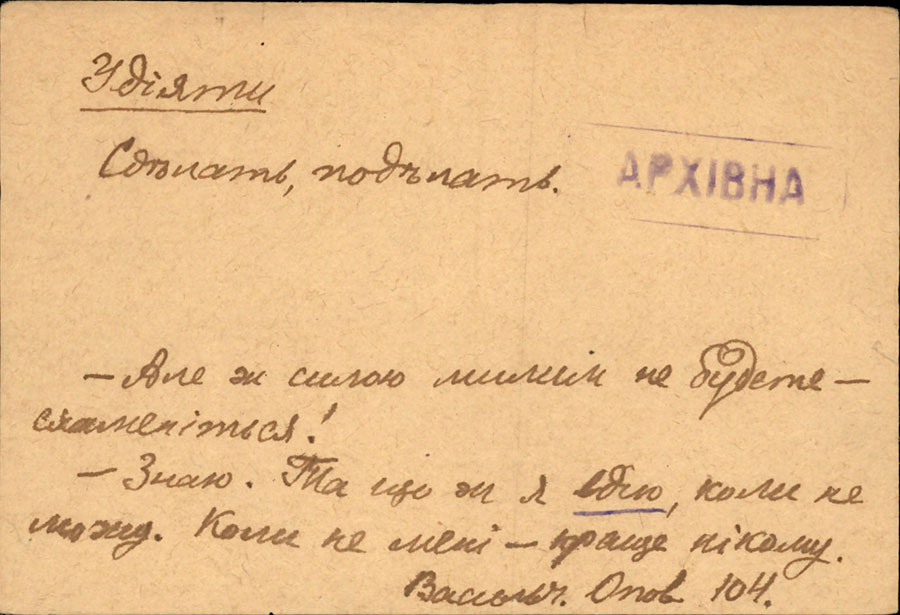 Удіяти
Сдѣлать, подѣлать.
АРХІВНА
— Але ж силою милим не будете —
схаменіться!
— Знаю. Та що ж я вдію, коли не
можу. Коли не мені — краще нікому.
Васильч. Опов 104.